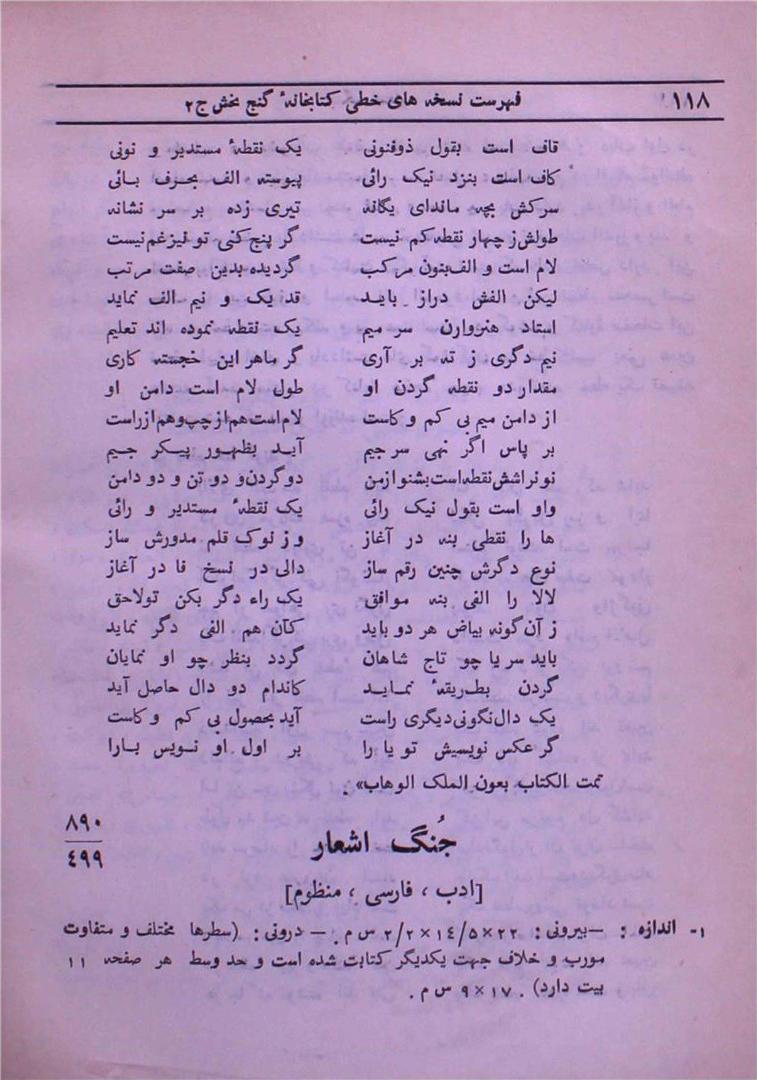 ۱۱۸ فهرست نسخه های خطی کتابخانهٔ گنج بخش ج۲
قاف است بقول ذوفنونی یک نقطهٔ مستدیر و نونی
کاف است بنزد نیک رائی پیوسته الف بحرف بائی
سرکش بچه ماندای یگانه تیری زده بر سر نشانه
طولش ز چهار نقطه کم نیست گر پنج کنی تو نیز غم نیست
لام است و الف بنون مرکب گردیده بدین صفت مرتب
لیکن الفش دراز باید قد یک و نیم الف نماید
استاد هنروارن سر میم یک نقطه نموده اند تعلیم
نیم دگری ز ته بر آری گر ماهر این خجسته کاری
مقدار دو نقطه گردن او طول لام است دامن او
از دامن میم بی کم و کاست لام است هم از چپ و هم از راست
بر پاس اگر نهی سر جیم آید بظهور پیکر جیم
نو نراشش نقطه است بشنو از من دو گردن و دو تن و دو دامن
واو است بقول نیک رائی یک نقطهٔ مستدیر و رائی
ها را نقطی بنه در آغاز وز نوک قلم مدورش ساز
نوع دگرش چنین رقم ساز دالی در نسخ فا در آغاز
لالا را الفی بنه موافق یک راء دگر بکن تولاحق
ز آن گونه بیاض هر دو باید کآن هم الفی دگر نماید
باید سر یا چو تاج شاهان گردد بنظر چو او نمایان
گردن بطریقهٔ نماید کاندام دو دال حاصل آید
یک دال نگونی دیگری راست آید بحصول بی کم و کاست
گر عکس نویسیش تو یا را بر اول او نویس بارا
تمت الکتاب بعون الملک الوهاب» .
۸۹۰
۴۹۹
جُنگ اشعار
[ادب ، فارسی ، منظوم]
۱- اندازه : —بیرونی : ۲۲×۱۴/۵×۲/۲ س م . — درونی : (سطرها مختلف و متفاوت
مورب و خلاف جهت یکدیگر کتابت شده است و حد وسط هر صفحه ۱۱
بیت دارد) . ۱۷×۹ س م .